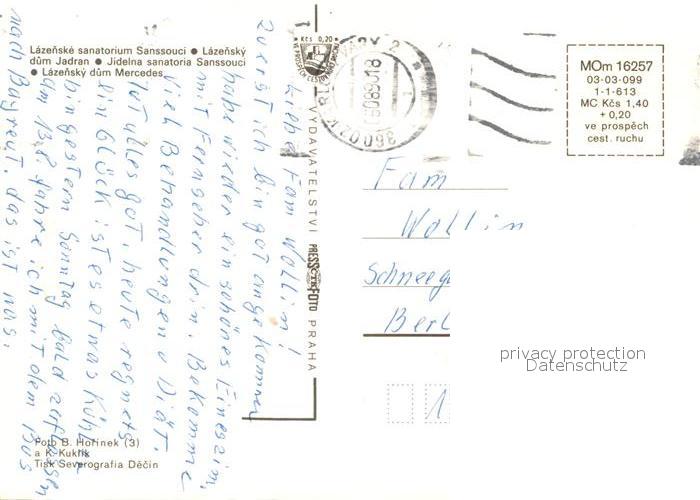 Lázeňské sanatorium Sanssouci ● Lázeňský
dům Jadran ● Jidelna sanatoria Sanssouci
● Lázeňský dům Mercedes
Liebe Fam Wollin!
zuerst ich bin got angekommen
habe wieder ein schönes Einerzim,
mit Fernseher drin. Bekomme
viel Behandlungen u Diät.
Tut alles got, heute regnets
ein Glück ist es etwas kühl
bin gestern Sonntag bald zerflossen
am 13.8. fahre ich mit dem Bus
nach Bayreut. das ist was.
Foto B. Hořínek (3)
a K. Kuklík
Tisk Severografia Děčín
VYDAVATELSTVÍ PRESSFOTO PRAHA
Kčs 0,20
VE PROSPĚCH CESTOVNÍHO RUCHU
VARY 2
360 02
MOm 16257
03-03-099
1-1-613
MC Kčs 1,40
+ 0,20
ve prospěch
cest. ruchu
Fam
Wollin
Schneeg
Berl
1
privacy protection
Datenschutz